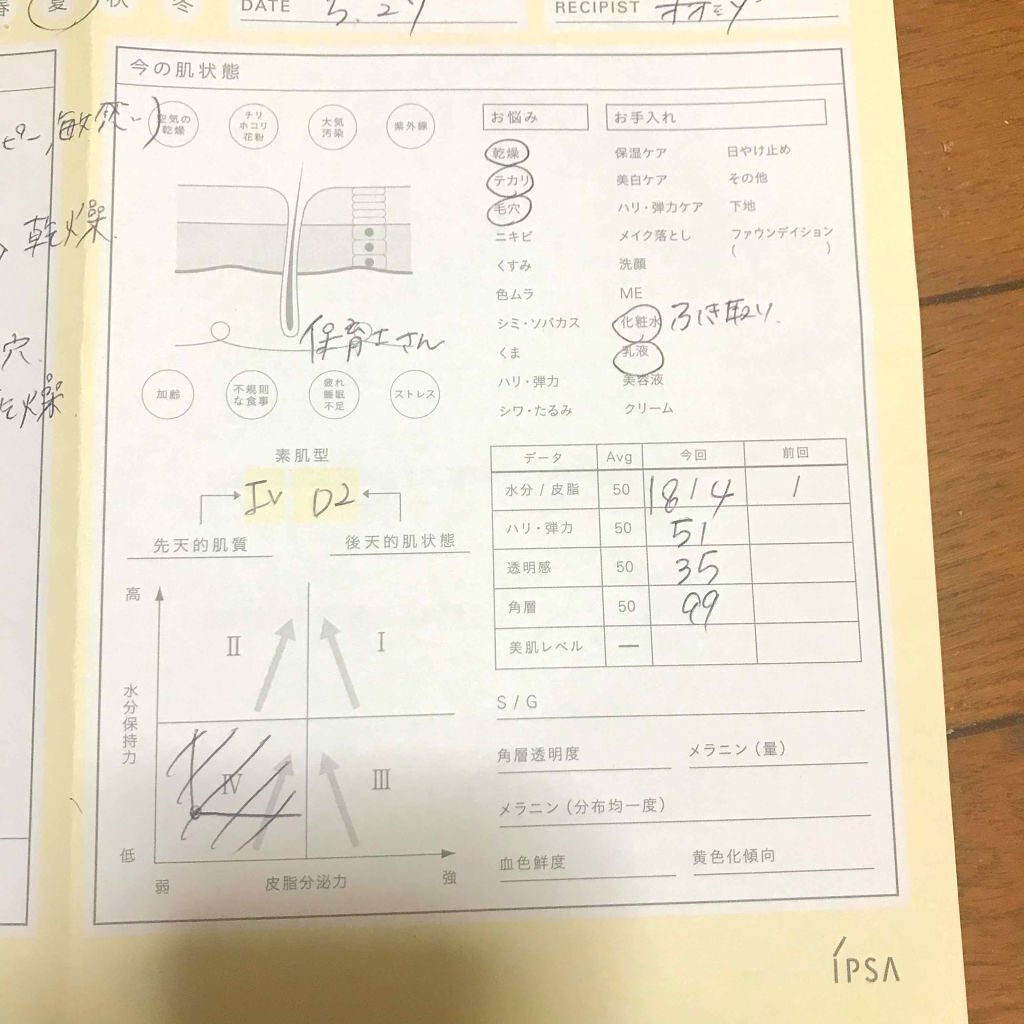 夏 秋 冬
DATE 5.27
RECIPIST
今の肌状態
敏感
乾燥
穴
乾燥
空気の乾燥
チリ ホコリ 花粉
大気汚染
紫外線
保育士さん
加齢
不規則な食事
疲れ 睡眠 不足
ストレス
お悩み
乾燥
テカリ
毛穴
ニキビ
くすみ
色ムラ
シミ・ソバカス
くま
ハリ・弾力
シワ・たるみ
お手入れ
保湿ケア 日やけ止め
美白ケア その他
ハリ・弾力ケア 下地
メイク落とし ファウンデイション
洗顔 ( )
ME
化粧水 ふき取り
乳液
美容液
クリーム
素肌型
IV D2
先天的肌質 後天的肌状態
高
水分保持力
低
II I
IV III
弱 皮脂分泌力 強
データ Avg 今回 前回
水分 / 皮脂 50 18 14 /
ハリ・弾力 50 51
透明感 50 35
角層 50 99
美肌レベル —
S / G
角層透明度 メラニン (量)
メラニン (分布均一度)
血色鮮度 黄色化傾向
IPSA